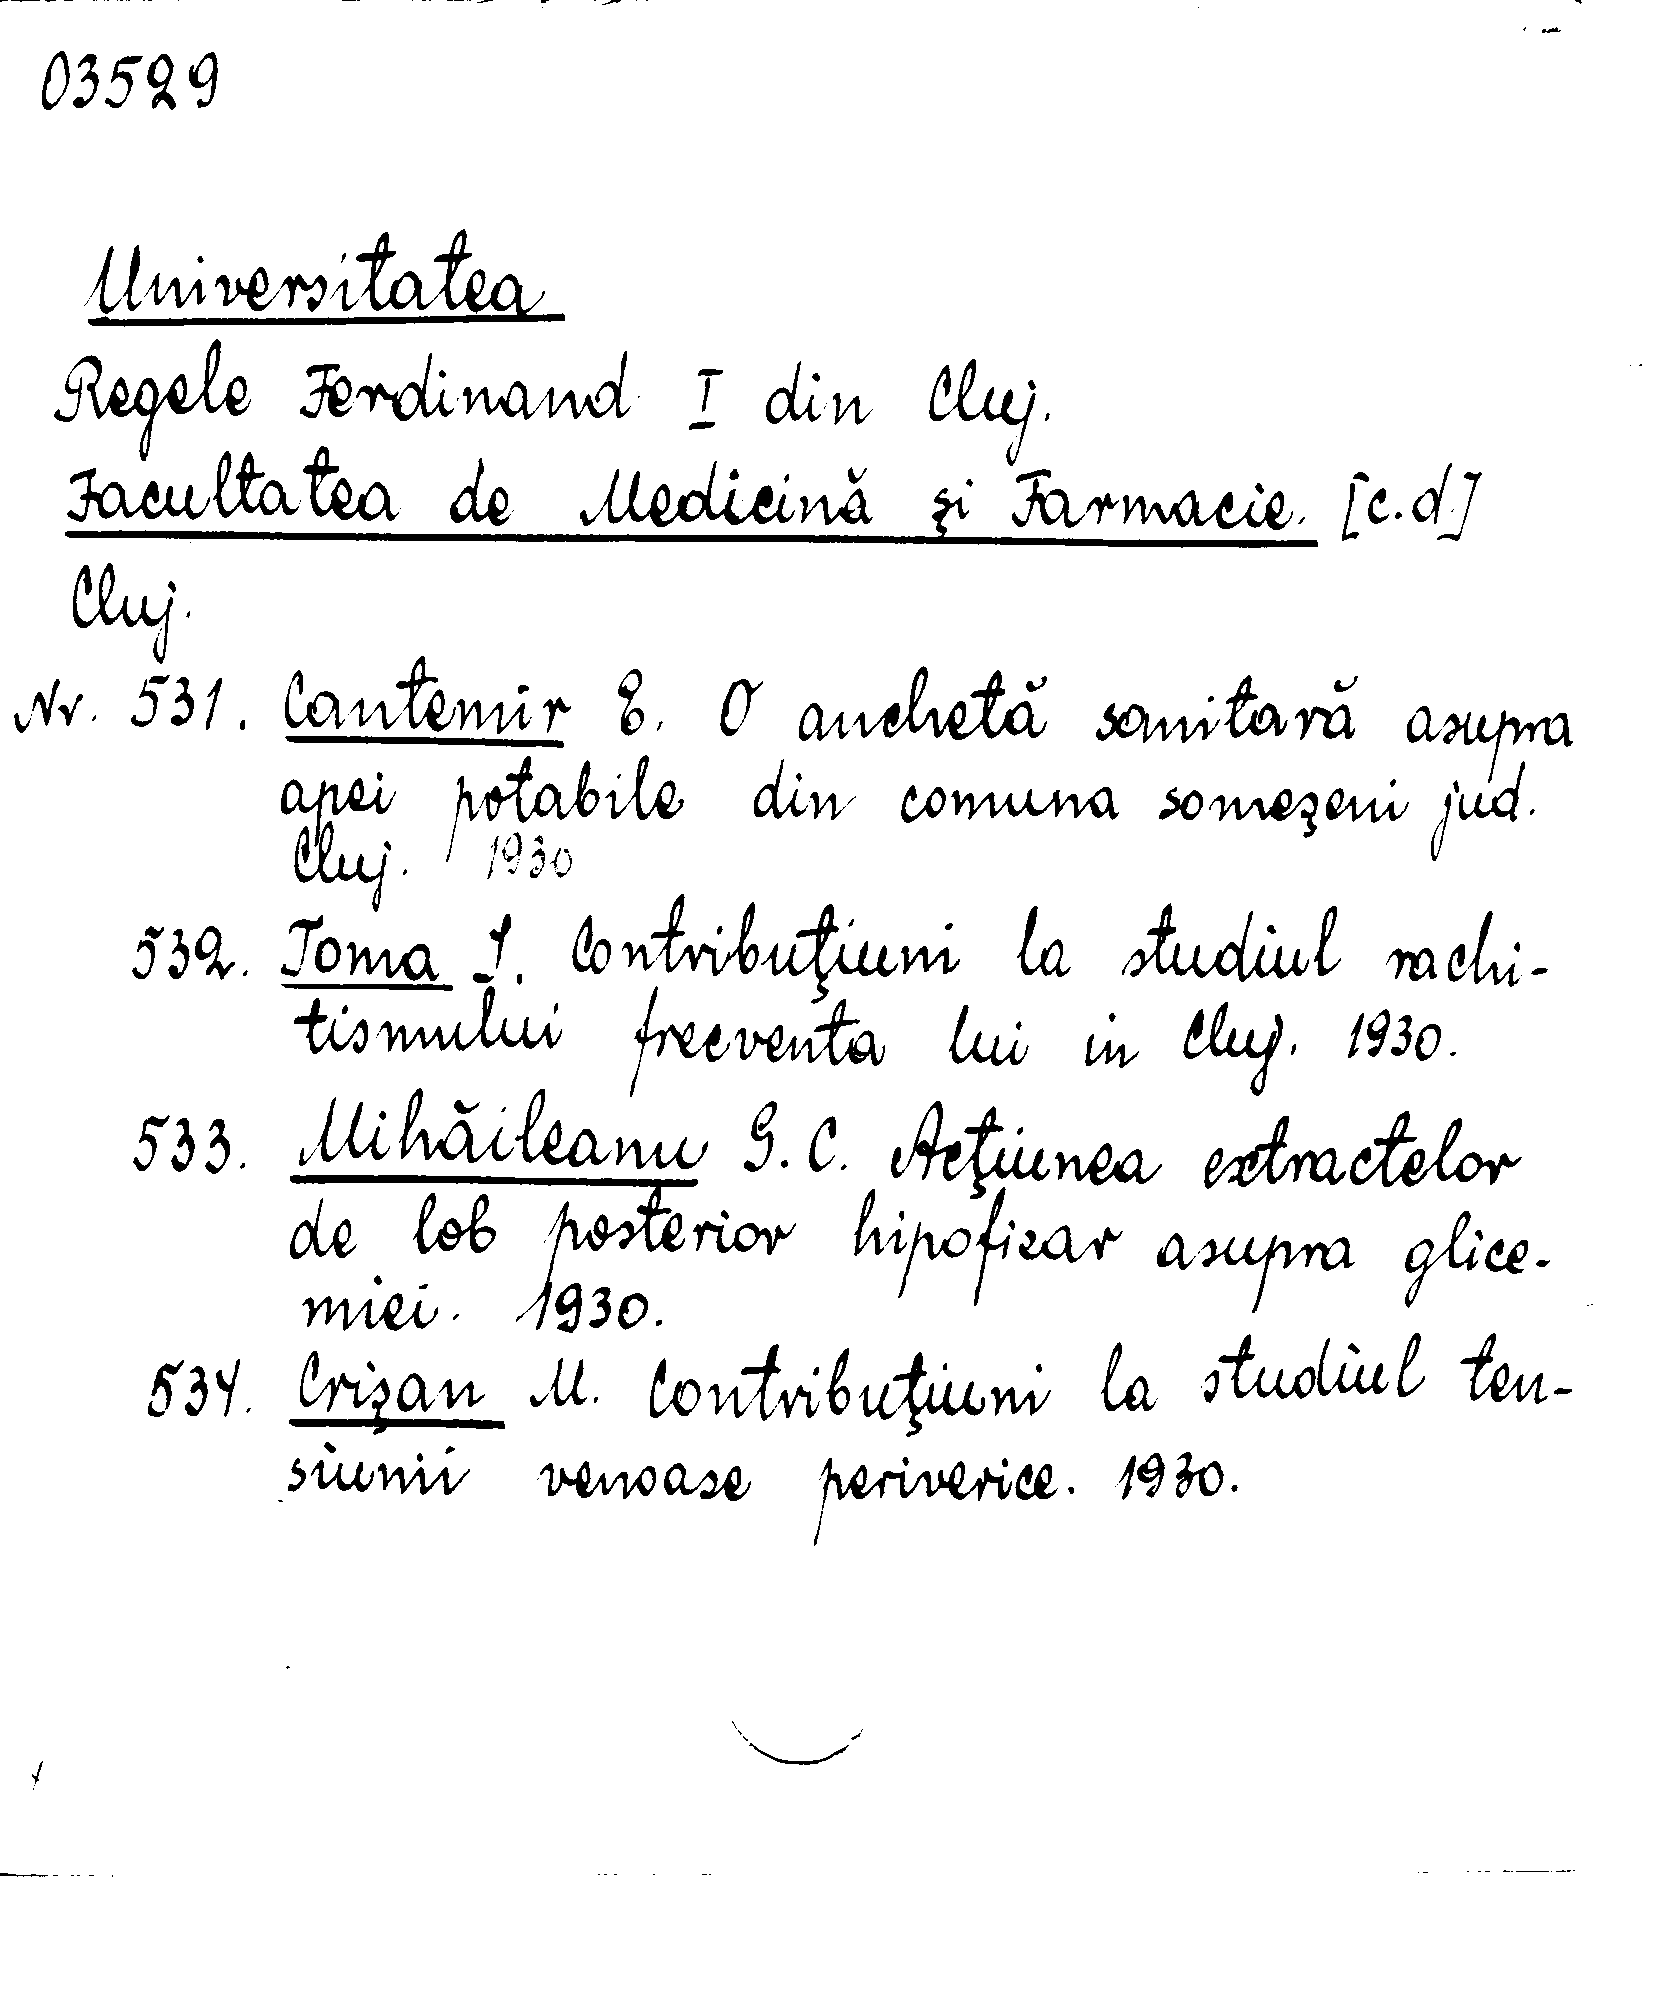 03529
Universitatea
Regele Ferdinand I din Cluj.
Facultatea de Medicină şi Farmacie. [c.d.]
Cluj.
Nr. 531. Cantemir E. O anchetă sanitară asupra
apei potabile din comuna someşeni jud.
Cluj. 1930
532. Toma I. Contribuţiuni la studiul rachi-
tismului frecventa lui in Cluj. 1930.
533. Mihăileanu G. C. Acţiunea extractelor
de lob posterior hipofizar asupra glice-
miei. 1930.
534. Crişan M. Contribuţiuni la studiul ten-
siunii venoase periverice. 1930.